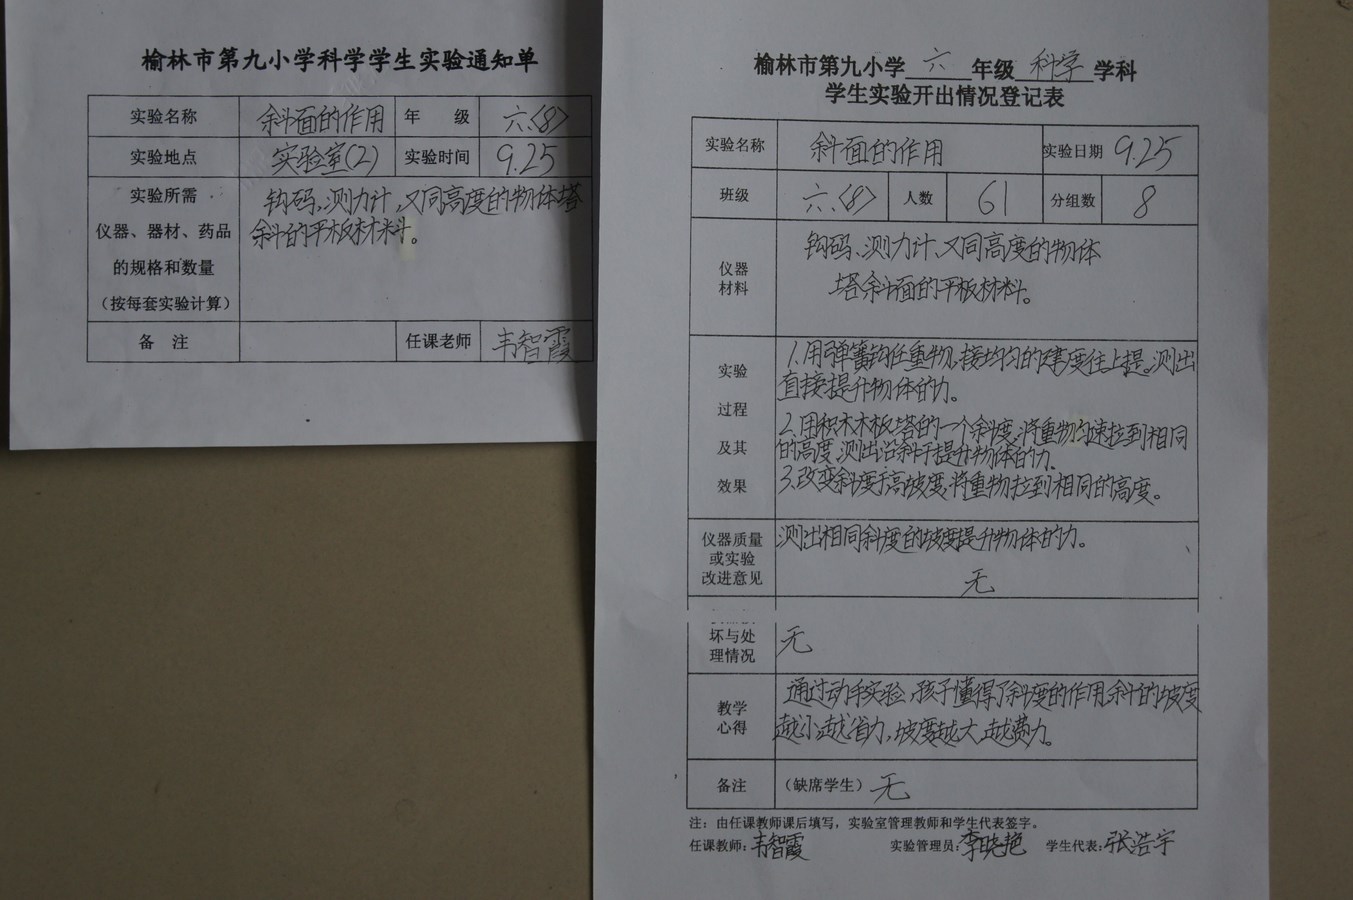 榆林市第九小学科学学生实验通知单
实验名称 斜面的作用 年 级 六〈8〉
实验地点 实验室(2) 实验时间 9.25
实验所需
仪器、器材、药品
的规格和数量
（按每套实验计算）
钩码、测力计、又同高度的物体塔
斜的平板材料。
备 注 任课老师 韦智霞
榆林市第九小学 六 年级 科学 学科
学生实验开出情况登记表
实验名称 斜面的作用 实验日期 9.25
班级 六〈8〉 人数 61 分组数 8
仪器
材料
钩码、测力计、又同高度的物体
塔斜面的平板材料。
实验
过程
及其
效果
1.用弹簧钩住重物,接均匀的速度往上提。测出
直接提升物体的力。
2.用积木木板塔的一个斜度,将重物匀速拉到相同
的高度,测出沿斜于提升物体的力。
3.改变斜度于高坡度,将重物拉到相同的高度。
仪器质量
或实验
改进意见
测出相同斜度的坡度提升物体的力。
无
坏与处
理情况
无
教学
心得
通过动手实验,孩子懂得了斜度的作用,斜的坡度
越小越省力,坡度越大,越费力。
备注 （缺席学生） 无
注：由任课教师课后填写，实验室管理教师和学生代表签字。
任课教师：韦智霞 实验管理员：李晓艳 学生代表：张浩宇